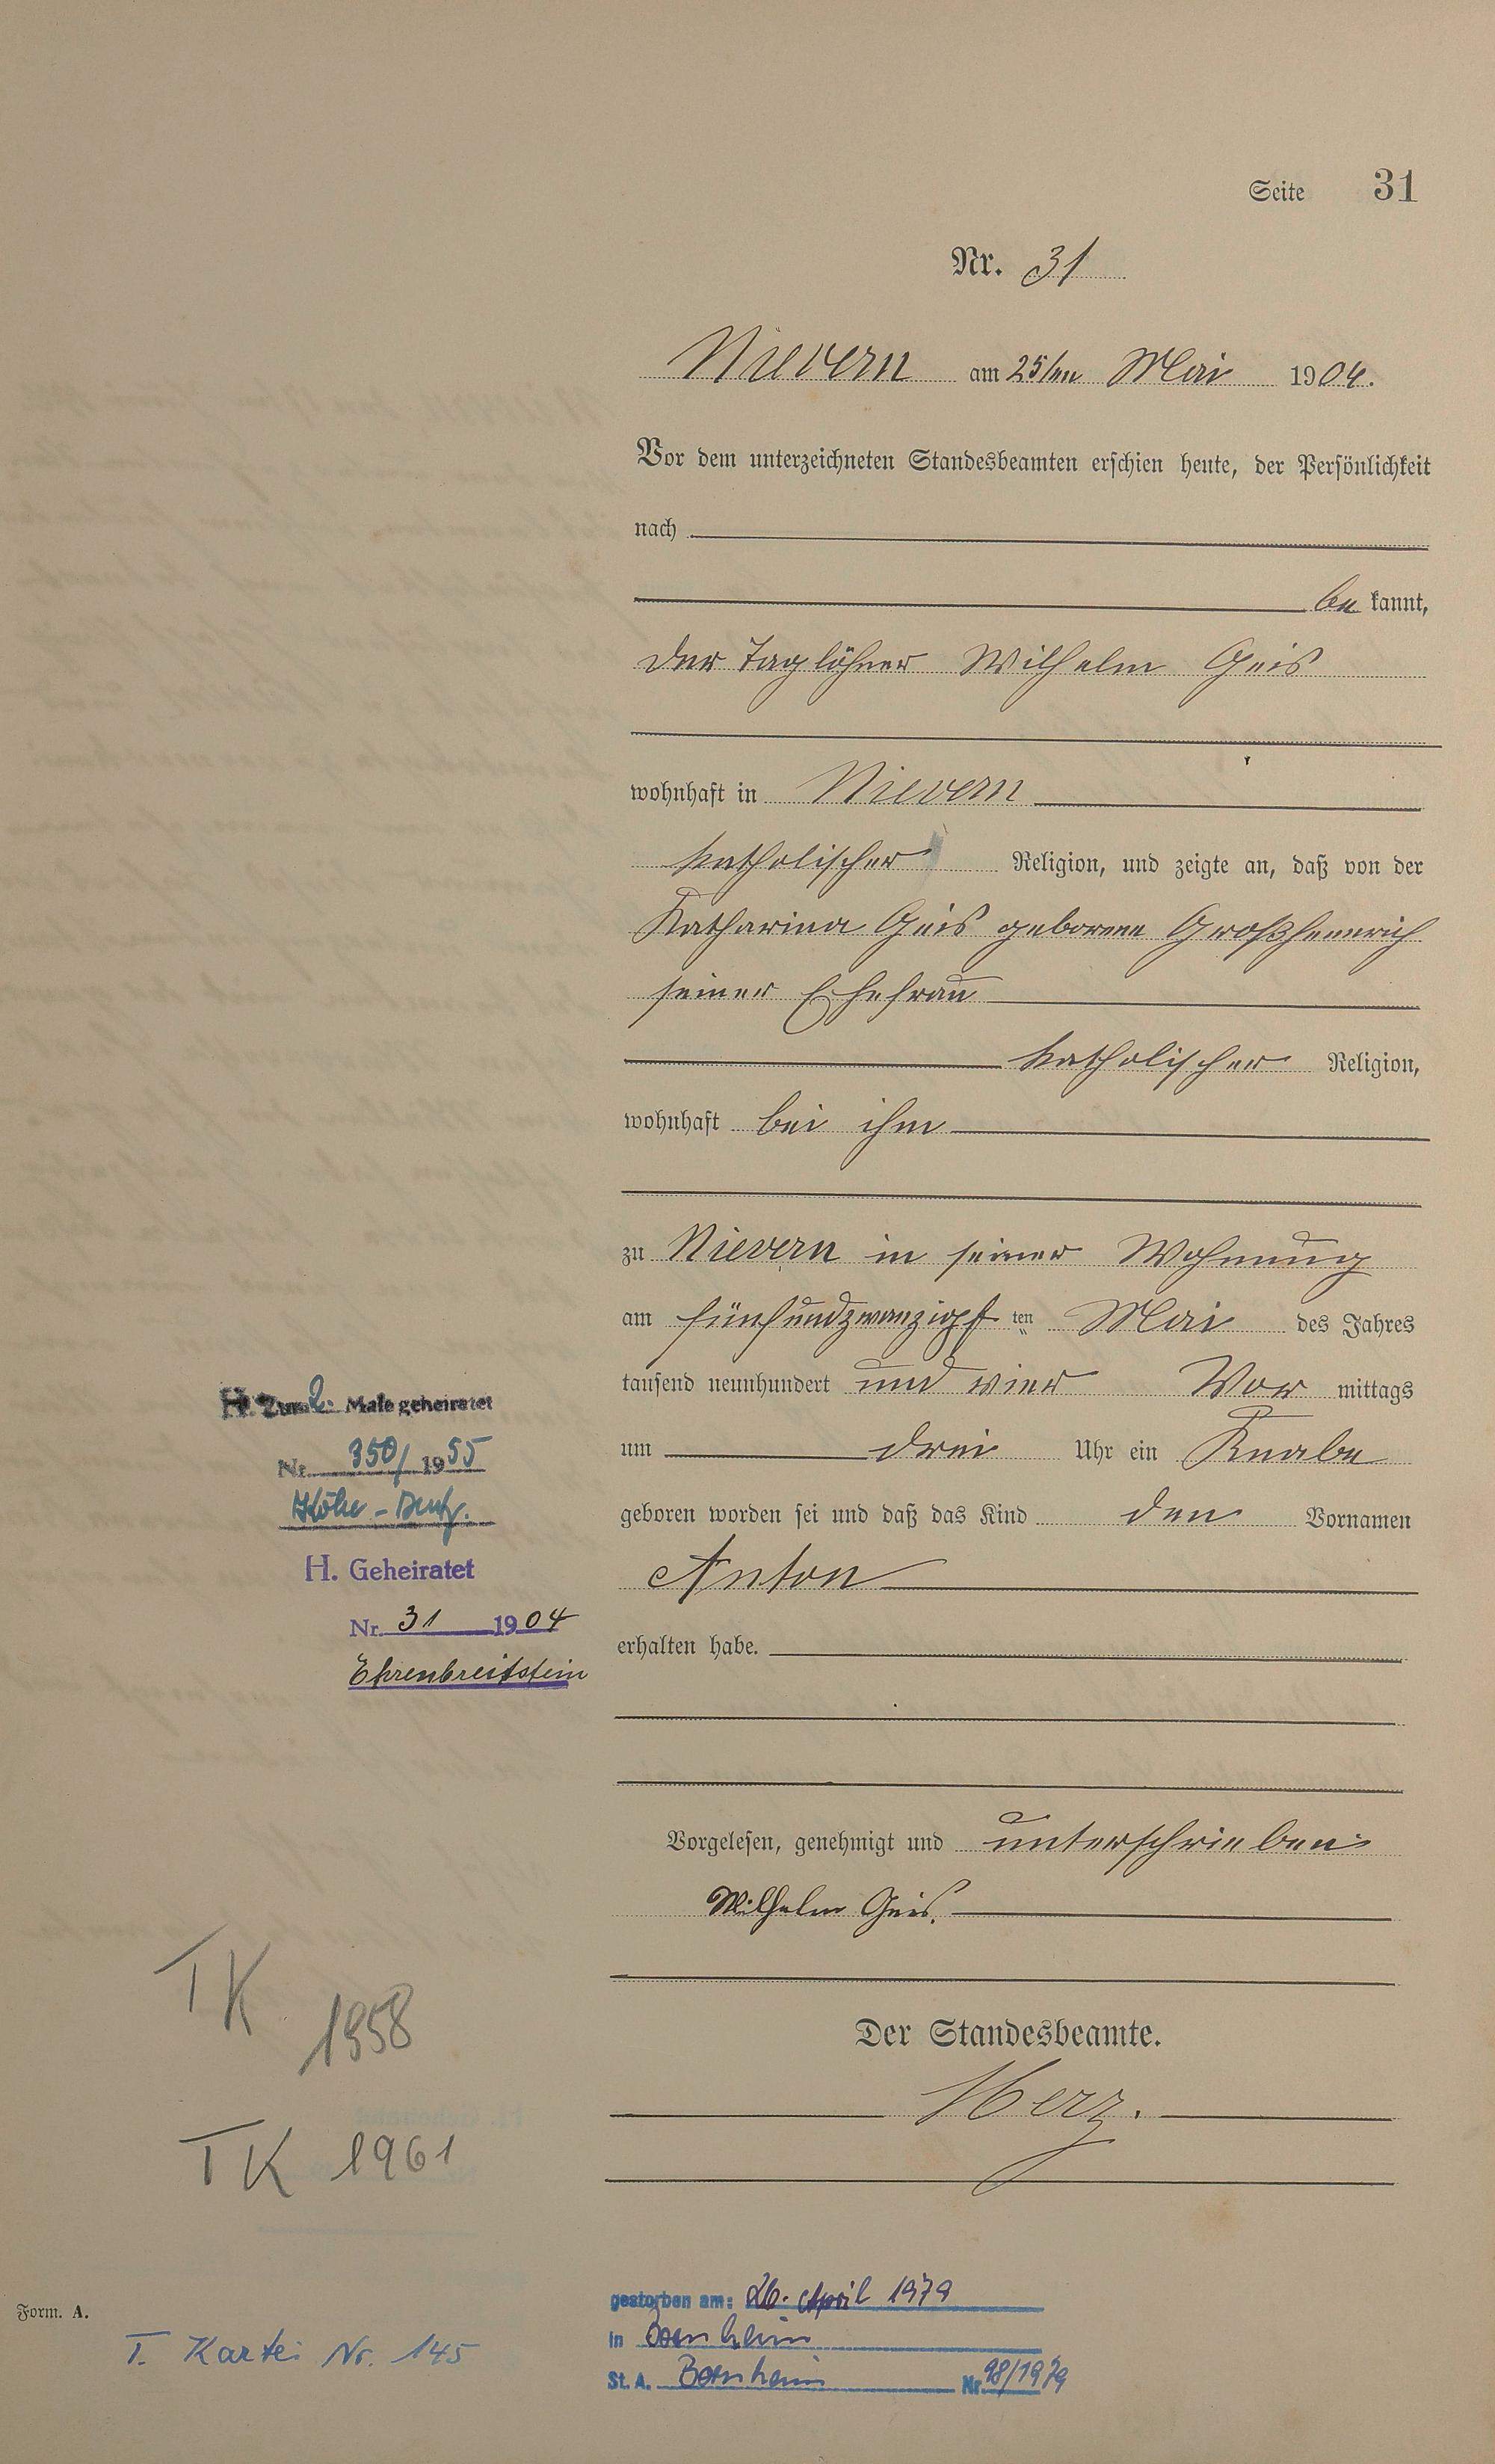 Seite 31
Nr. 31
Nievern am 25ten Mai 1904.
Vor dem unterzeichneten Standesbeamten erschien heute, der Persönlichkeit
nach
be kannt,
der Taglöhner Wilhelm Geis
wohnhaft in Nievern
katholischer Religion, und zeigte an, daß von der
Katharina Geis geborene Großhennrich
seiner Ehefrau
katholischer Religion,
wohnhaft bei ihm
zu Nievern in seiner Wohnung
am fünfundzwanzigst ten Mai des Jahres
tausend neunhundert und vier Vor mittags
um drei Uhr ein Knabe
geboren worden sei und daß das Kind den Vornamen
Anton
erhalten habe.
Vorgelesen, genehmigt und unterschrieben
Wilhelm Geis.
Der Standesbeamte.
Herz.
H. Zum 2. Male geheiratet
Nr. 350/1955
H. Geheiratet
Nr. 31 1904
Ehrenbreitstein
TK 1958
TK 1961
Form. A.
T. Kartei Nr. 145
gestorben am: 26. April 1979
in Bornheim
St. A. Bornheim Nr. 98/1979